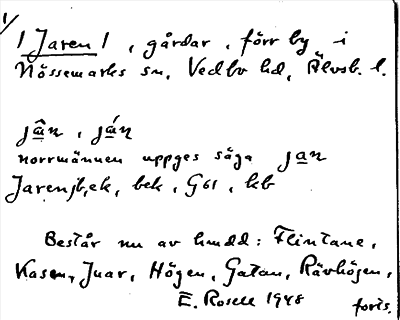 1/
/ Jaren /, gårdar, förr by i
Nössemarks sn, Vedbo hd, Älvsb. l.
jân, ján
norrmännen uppges säga jan
Jarenjb, ek, bek, G61, kb
Består nu av hmdd: Flintane,
Kasen, Juar, Högen, Gatan, Rävhögen,
E. Rosell 1948 forts.